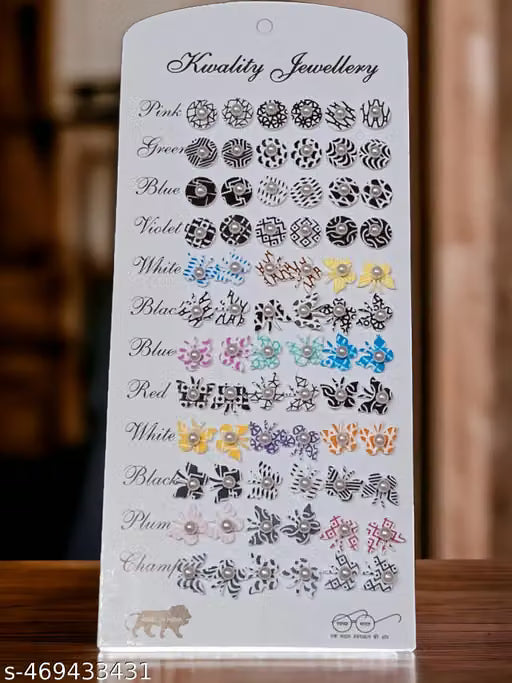 Kwality Jewellery
Pink
Green
Blue
Violet
White
Black
Blue
Red
White
Black
Plum
Champ
एक कदम स्वच्छता की ओर
s-469433431